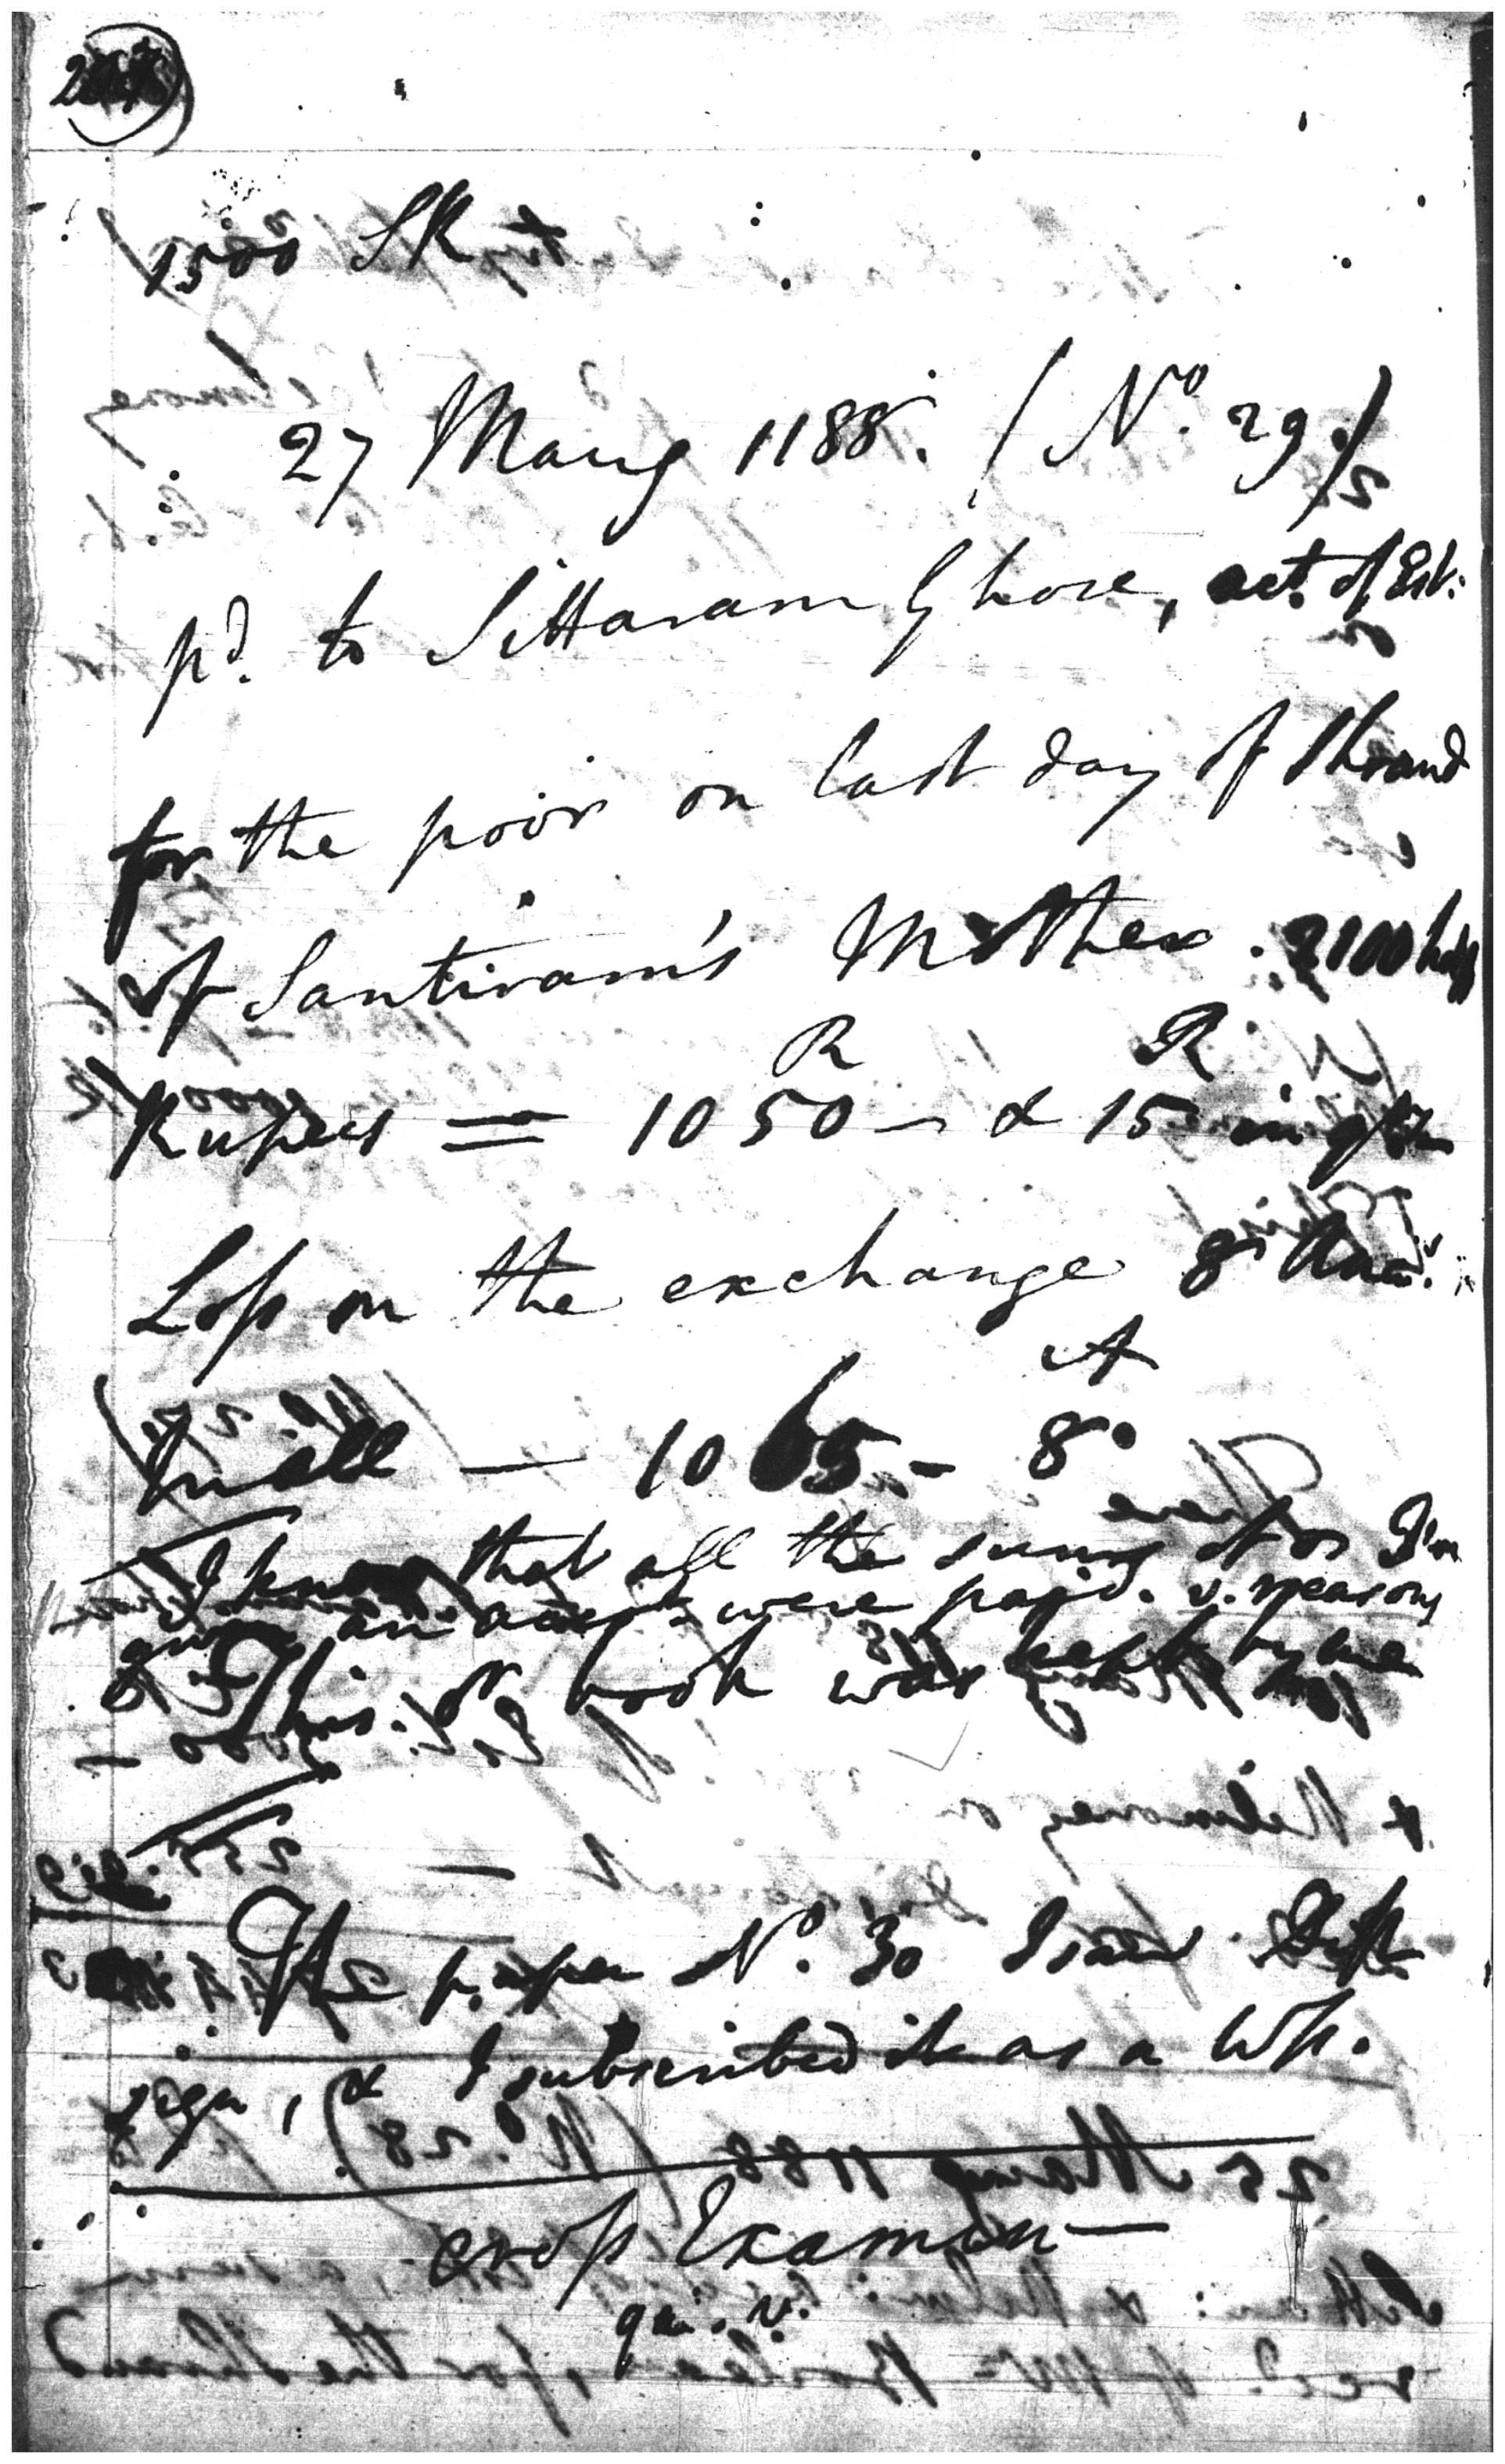 1500 SR
27 Maug 1188. (No. 29.)
pd. to Sittaram Ghose, act. of Est.
for the poor on last day of Shraud
of Santiram's Mother. 2100 half
Rupees = 1050 R & 15 R in
Loss on the exchange 8 Ans.
In all — 1065 - 8 A
I know that all the sums ever for I'm
given an acct. were paid. v. reasons
This book was kept by me
The paper No. 30 I saw
sign, & I subscribed it as a Wss.
cross Examn —
qu. v.